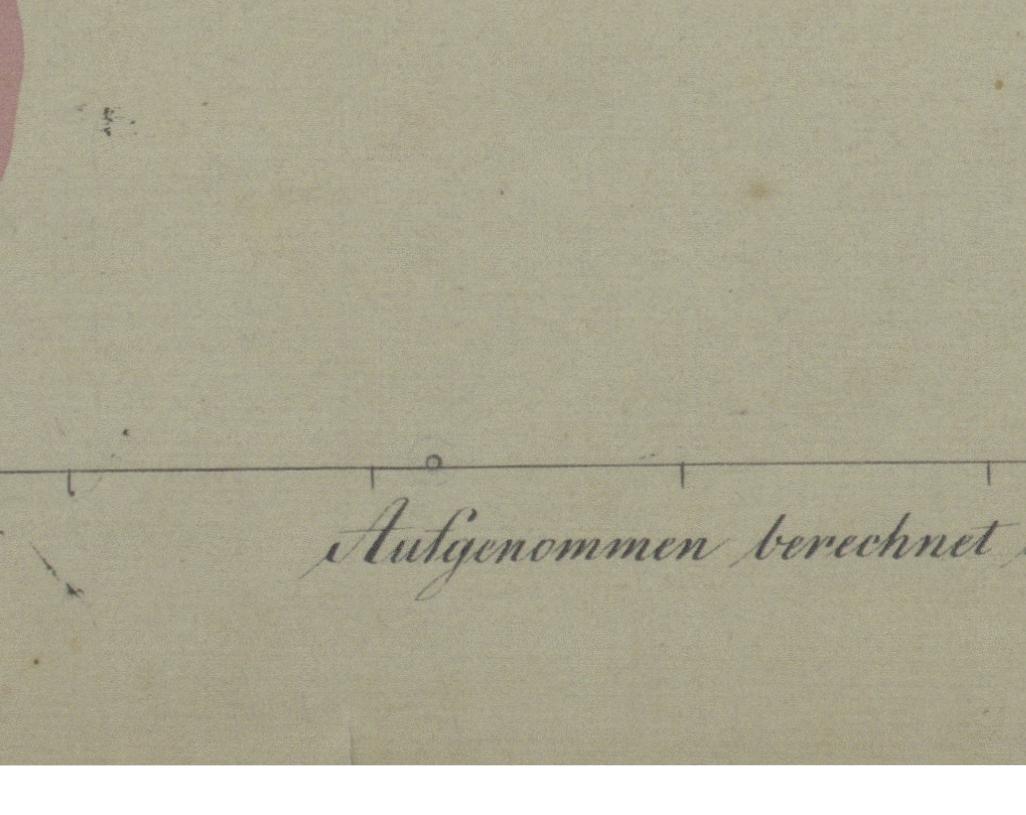 Aufgenommen berechnet